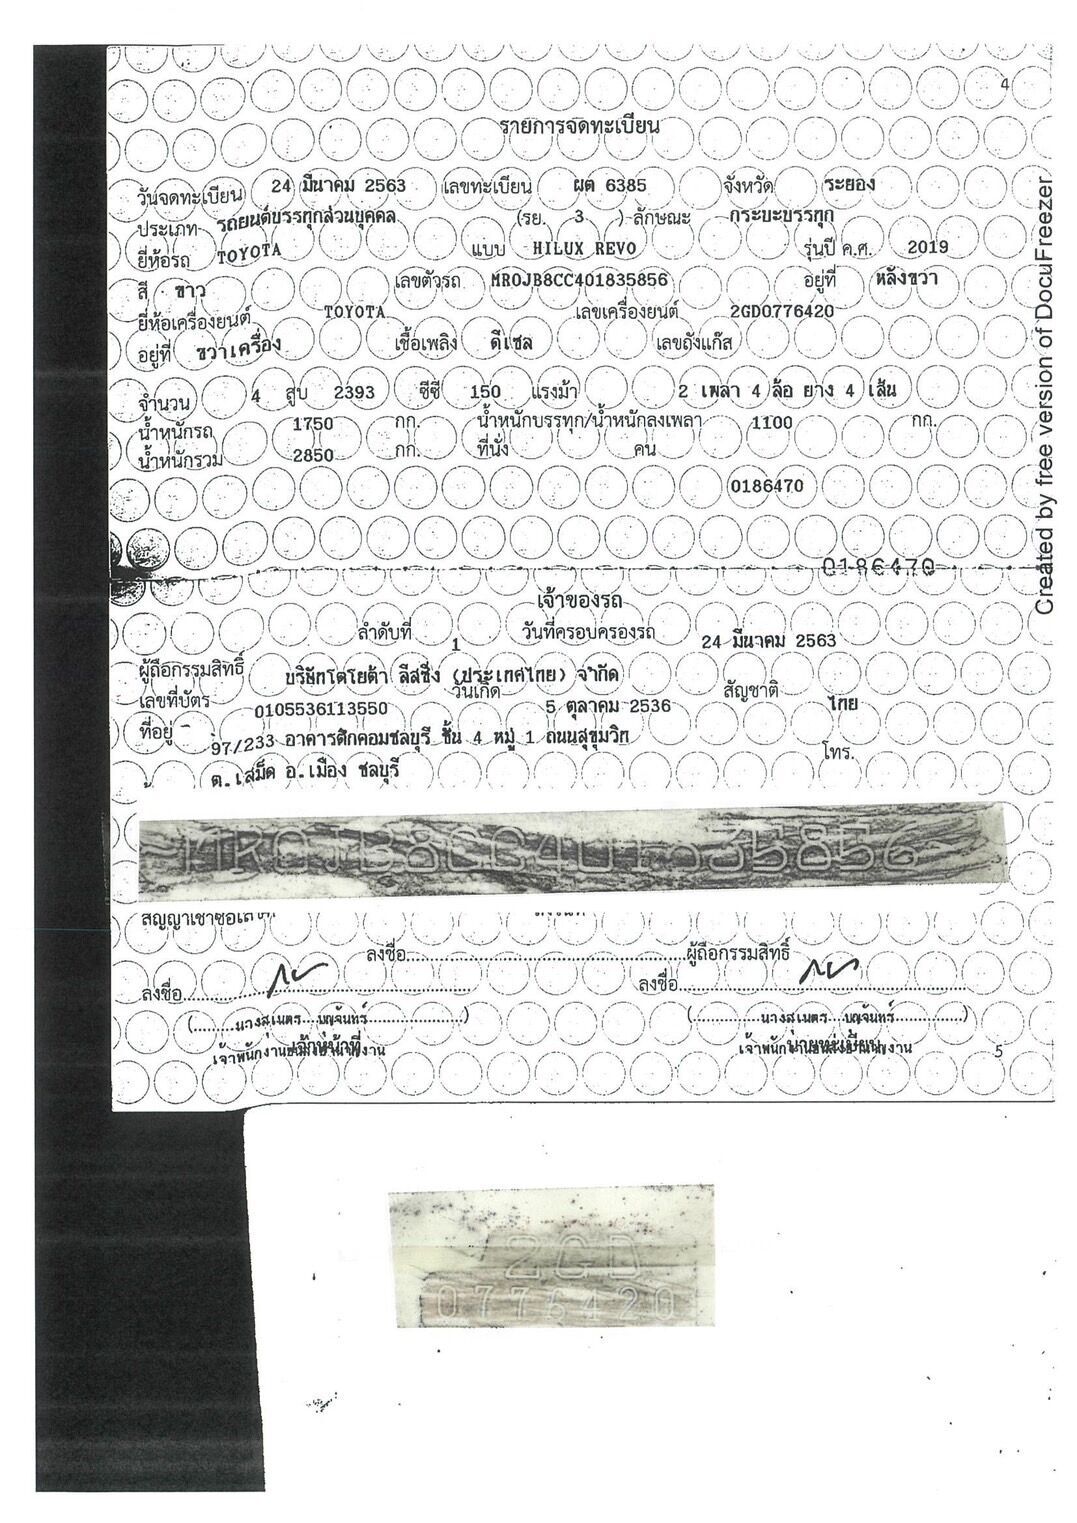 4
รายการจดทะเบียน
วันจดทะเบียน 24 มีนาคม 2563 เลขทะเบียน ผต 6385 จังหวัด ระยอง
ประเภท รถยนต์บรรทุกส่วนบุคคล (รย. 3 ) ลักษณะ กระบะบรรทุก
ยี่ห้อรถ TOYOTA แบบ HILUX REVO รุ่นปี ค.ศ. 2019
สี ขาว เลขตัวรถ MR0JB8CC401835856 อยู่ที่ หลังขวา
ยี่ห้อเครื่องยนต์ TOYOTA เลขเครื่องยนต์ 2GD0776420
อยู่ที่ ขวาเครื่อง เชื้อเพลิง ดีเซล เลขถังแก๊ส
จำนวน 4 สูบ 2393 ซีซี 150 แรงม้า 2 เพลา 4 ล้อ ยาง 4 เส้น
น้ำหนักรถ 1750 กก. น้ำหนักบรรทุก/น้ำหนักลงเพลา 1100 กก.
น้ำหนักรวม 2850 กก. ที่นั่ง คน
0186470
0186470
เจ้าของรถ
ลำดับที่ 1 วันที่ครอบครองรถ 24 มีนาคม 2563
ผู้ถือกรรมสิทธิ์ บริษัทโตโยต้า ลีสซิ่ง (ประเทศไทย) จำกัด
เลขที่บัตร 0105536113550 วันเกิด 5 ตุลาคม 2536 สัญชาติ ไทย
ที่อยู่ 97/233 อาคารตึกคอมชลบุรี ชั้น 4 หมู่ 1 ถนนสุขุมวิท โทร.
ต.เสม็ด อ.เมือง ชลบุรี
MR0JB8CC401835856
สัญญาเช่าซื้อเลขที่
ลงชื่อ ผู้ถือกรรมสิทธิ์
ลงชื่อ ลงชื่อ
(นางสุเนตร บุญจันทร์) (นางสุเนตร บุญจันทร์)
เจ้าหน้าที่ นายทะเบียน
5
2GD
0776420
Created by free version of DocuFreezer